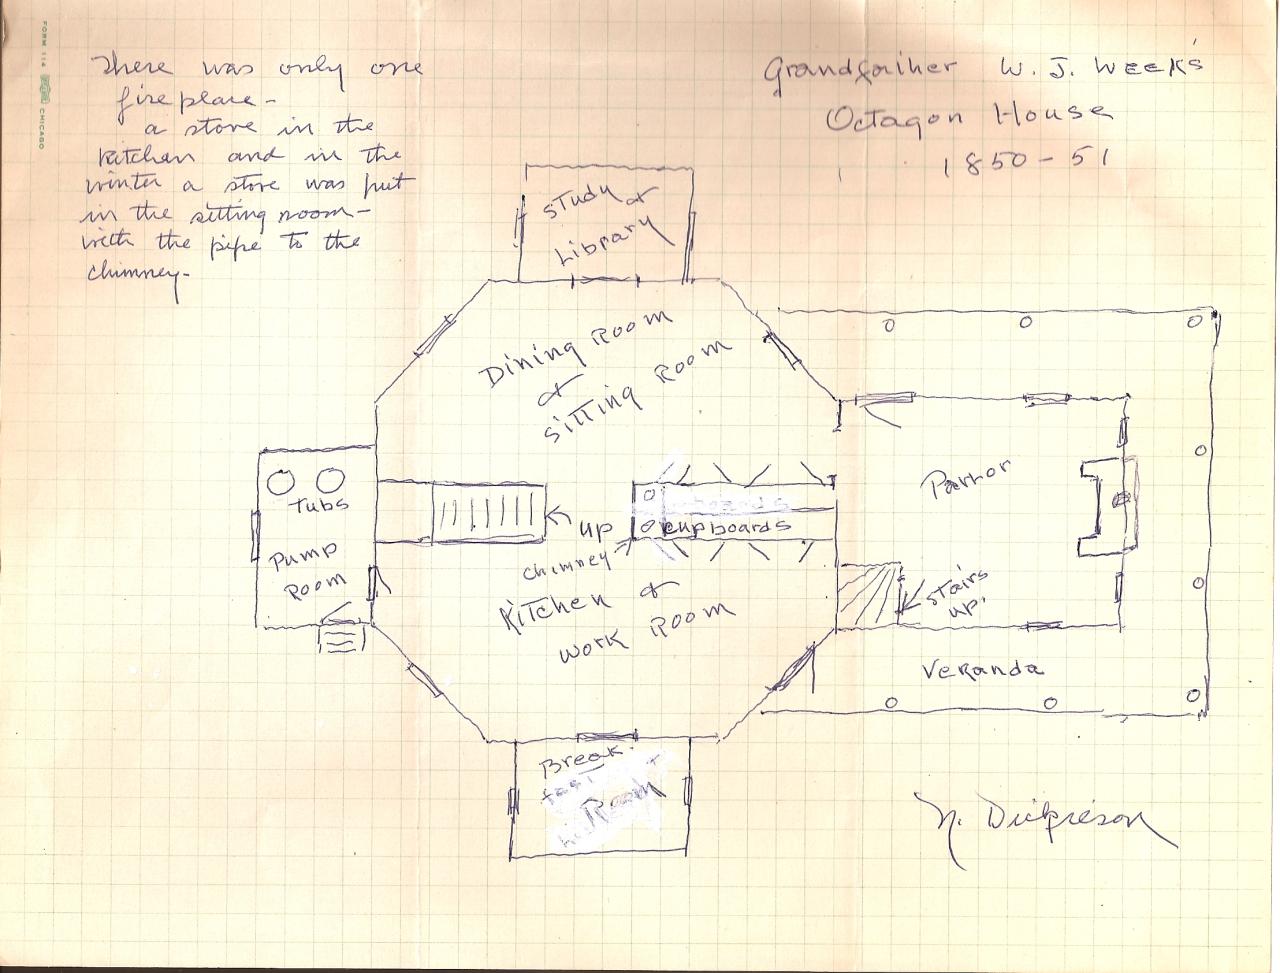 FORM 114 CHICAGO
There was only one
fireplace -
a stove in the
kitchen and in the
winter a stove was put
in the sitting room -
with the pipe to the
chimney -
Grandfather W. J. Weeks'
Octagon House
1850 - 51
Study &
Library
Dining Room
&
Sitting Room
Tubs
Pump
Room
up
cupboards
chimney
Kitchen &
Work Room
Parlor
Stairs
up.
Veranda
Break-
fast
Room
N. Dickerson